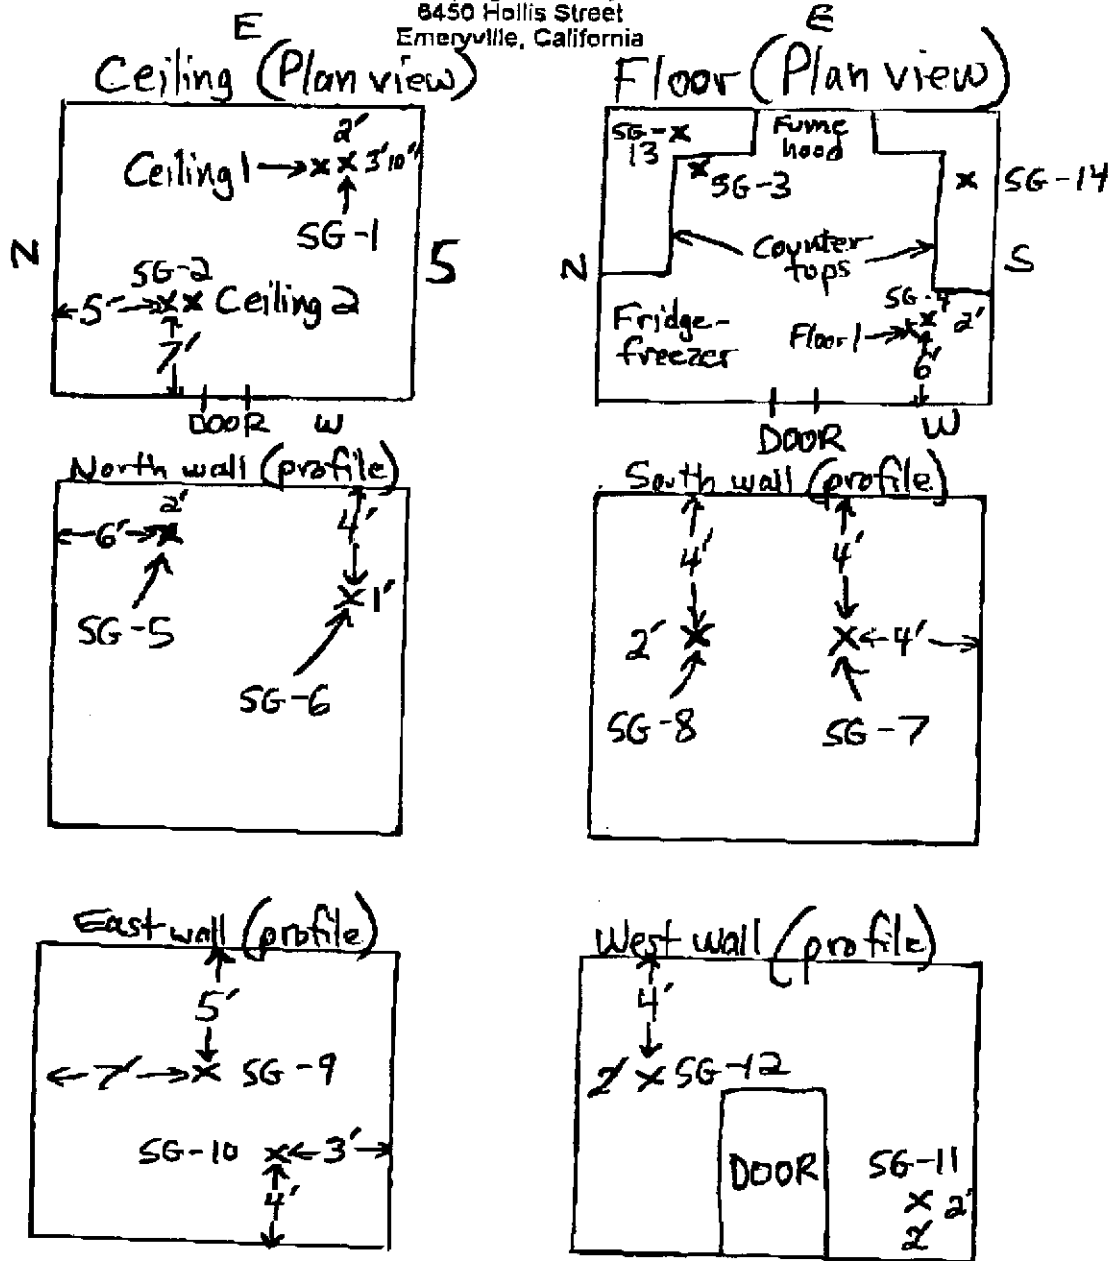 6450 Hollis Street
Emeryville, California
E
Ceiling (Plan view)
2'
Ceiling 1
3'10"
SG-1
N
S
SG-2
5'
Ceiling 2
7'
DOOR
W
E
Floor (Plan view)
SG-13
Fume hood
SG-3
SG-14
Counter tops
N
S
SG-4
Fridge-freezer
Floor 1
2'
6'
DOOR
W
North wall (profile)
2'
6'
4'
1'
SG-5
SG-6
South wall (profile)
4'
4'
2'
4'
SG-8
SG-7
East wall (profile)
5'
7'
SG-9
SG-10
3'
4'
West wall (profile)
4'
2'
SG-12
DOOR
SG-11
2'
2'